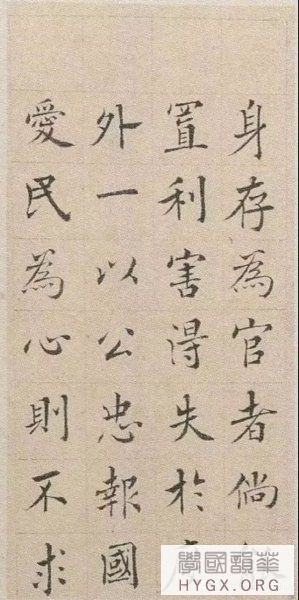 身存為官者倘
置利害得失於
外一以公忠報國
愛民為心則不求
學國韻華
HYGX.ORG